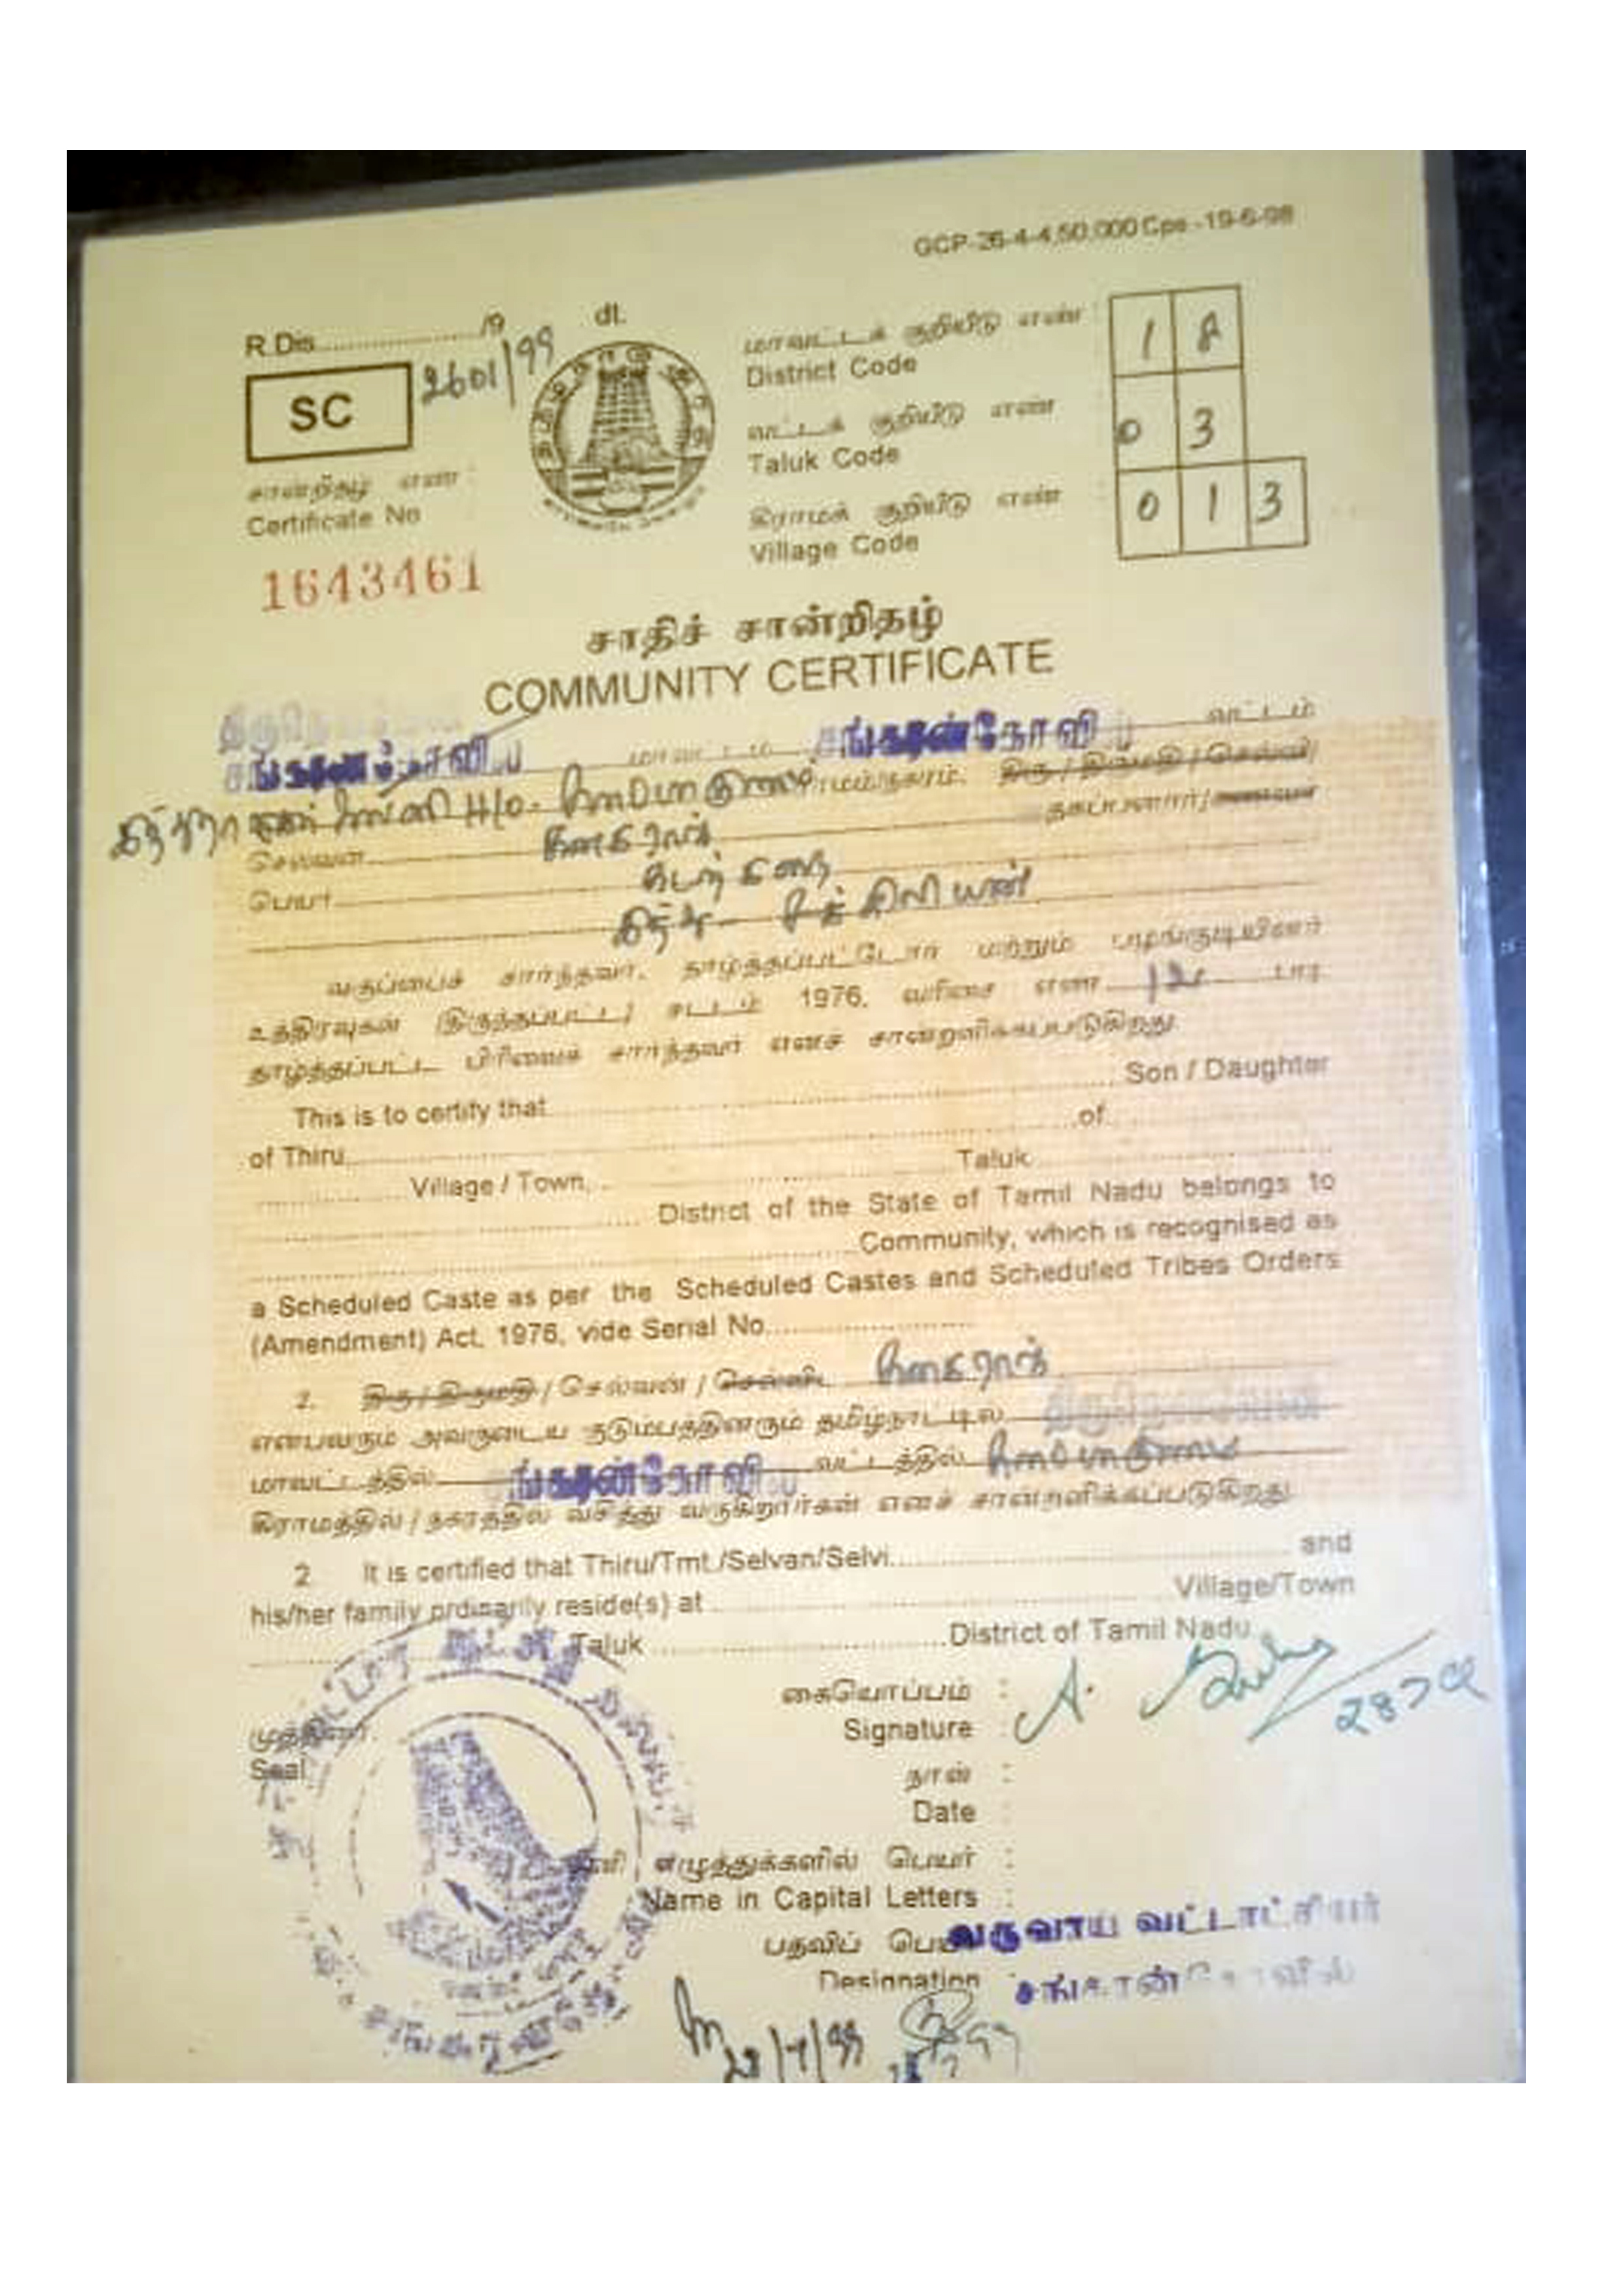 GCP-26-4-4,50,000 Cps -19-6-98
R.Dis............../9 dt.
2601/99
SC
சான்றிதழ் எண் :
Certificate No
1643461
மாவட்டக் குறியீடு எண் : 1 8
District Code
வட்டக் குறியீடு எண் 0 3
Taluk Code
கிராமக் குறியீடு எண் : 0 1 3
Village Code
சாதிச் சான்றிதழ்
COMMUNITY CERTIFICATE
மாவட்டம் சங்கரன்கோவில் வட்டம்
திரு / திருமதி / செல்வி/
செல்வன் கனகராஜ் தகப்பனார்/கணவர்
பெயர்
இந்து சக்கிலியன்
வகுப்பைச் சார்ந்தவர், தாழ்த்தப்பட்டோர் மற்றும் பழங்குடியினர்
உத்திரவுகள் (திருத்தப்பட்ட) சட்டம் 1976, வரிசை எண்
தாழ்த்தப்பட்ட பிரிவைச் சார்ந்தவர் எனச் சான்றளிக்கப்படுகிறது.
This is to certify that.............. Son / Daughter
of Thiru..............of..............
..............Village / Town,..............Taluk..............
.............. District of the State of Tamil Nadu belongs to
..............Community, which is recognised as
a Scheduled Caste as per the Scheduled Castes and Scheduled Tribes Orders
(Amendment) Act, 1976, vide Serial No..............
2. திரு / திருமதி / செல்வன் / செல்வி கனகராஜ்
என்பவரும் அவருடைய குடும்பத்தினரும் தமிழ்நாட்டில்
மாவட்டத்தில் சங்கரன்கோவில் வட்டத்தில்
கிராமத்தில் / நகரத்தில் வசித்து வருகிறார்கள் எனச் சான்றளிக்கப்படுகிறது.
2 It is certified that Thiru/Tmt./Selvan/Selvi.............. and
his/her family ordinarily reside(s) at..............Village/Town
..............Taluk..............District of Tamil Nadu
கையொப்பம் :
Signature : A.
முத்திரை
Seal
நாள் :
Date :
எழுத்துக்களில் பெயர் :
Name in Capital Letters :
பதவிப் வருவாய் வட்டாட்சியர்
Designation : சங்கரன்கோவில்
28/7/99